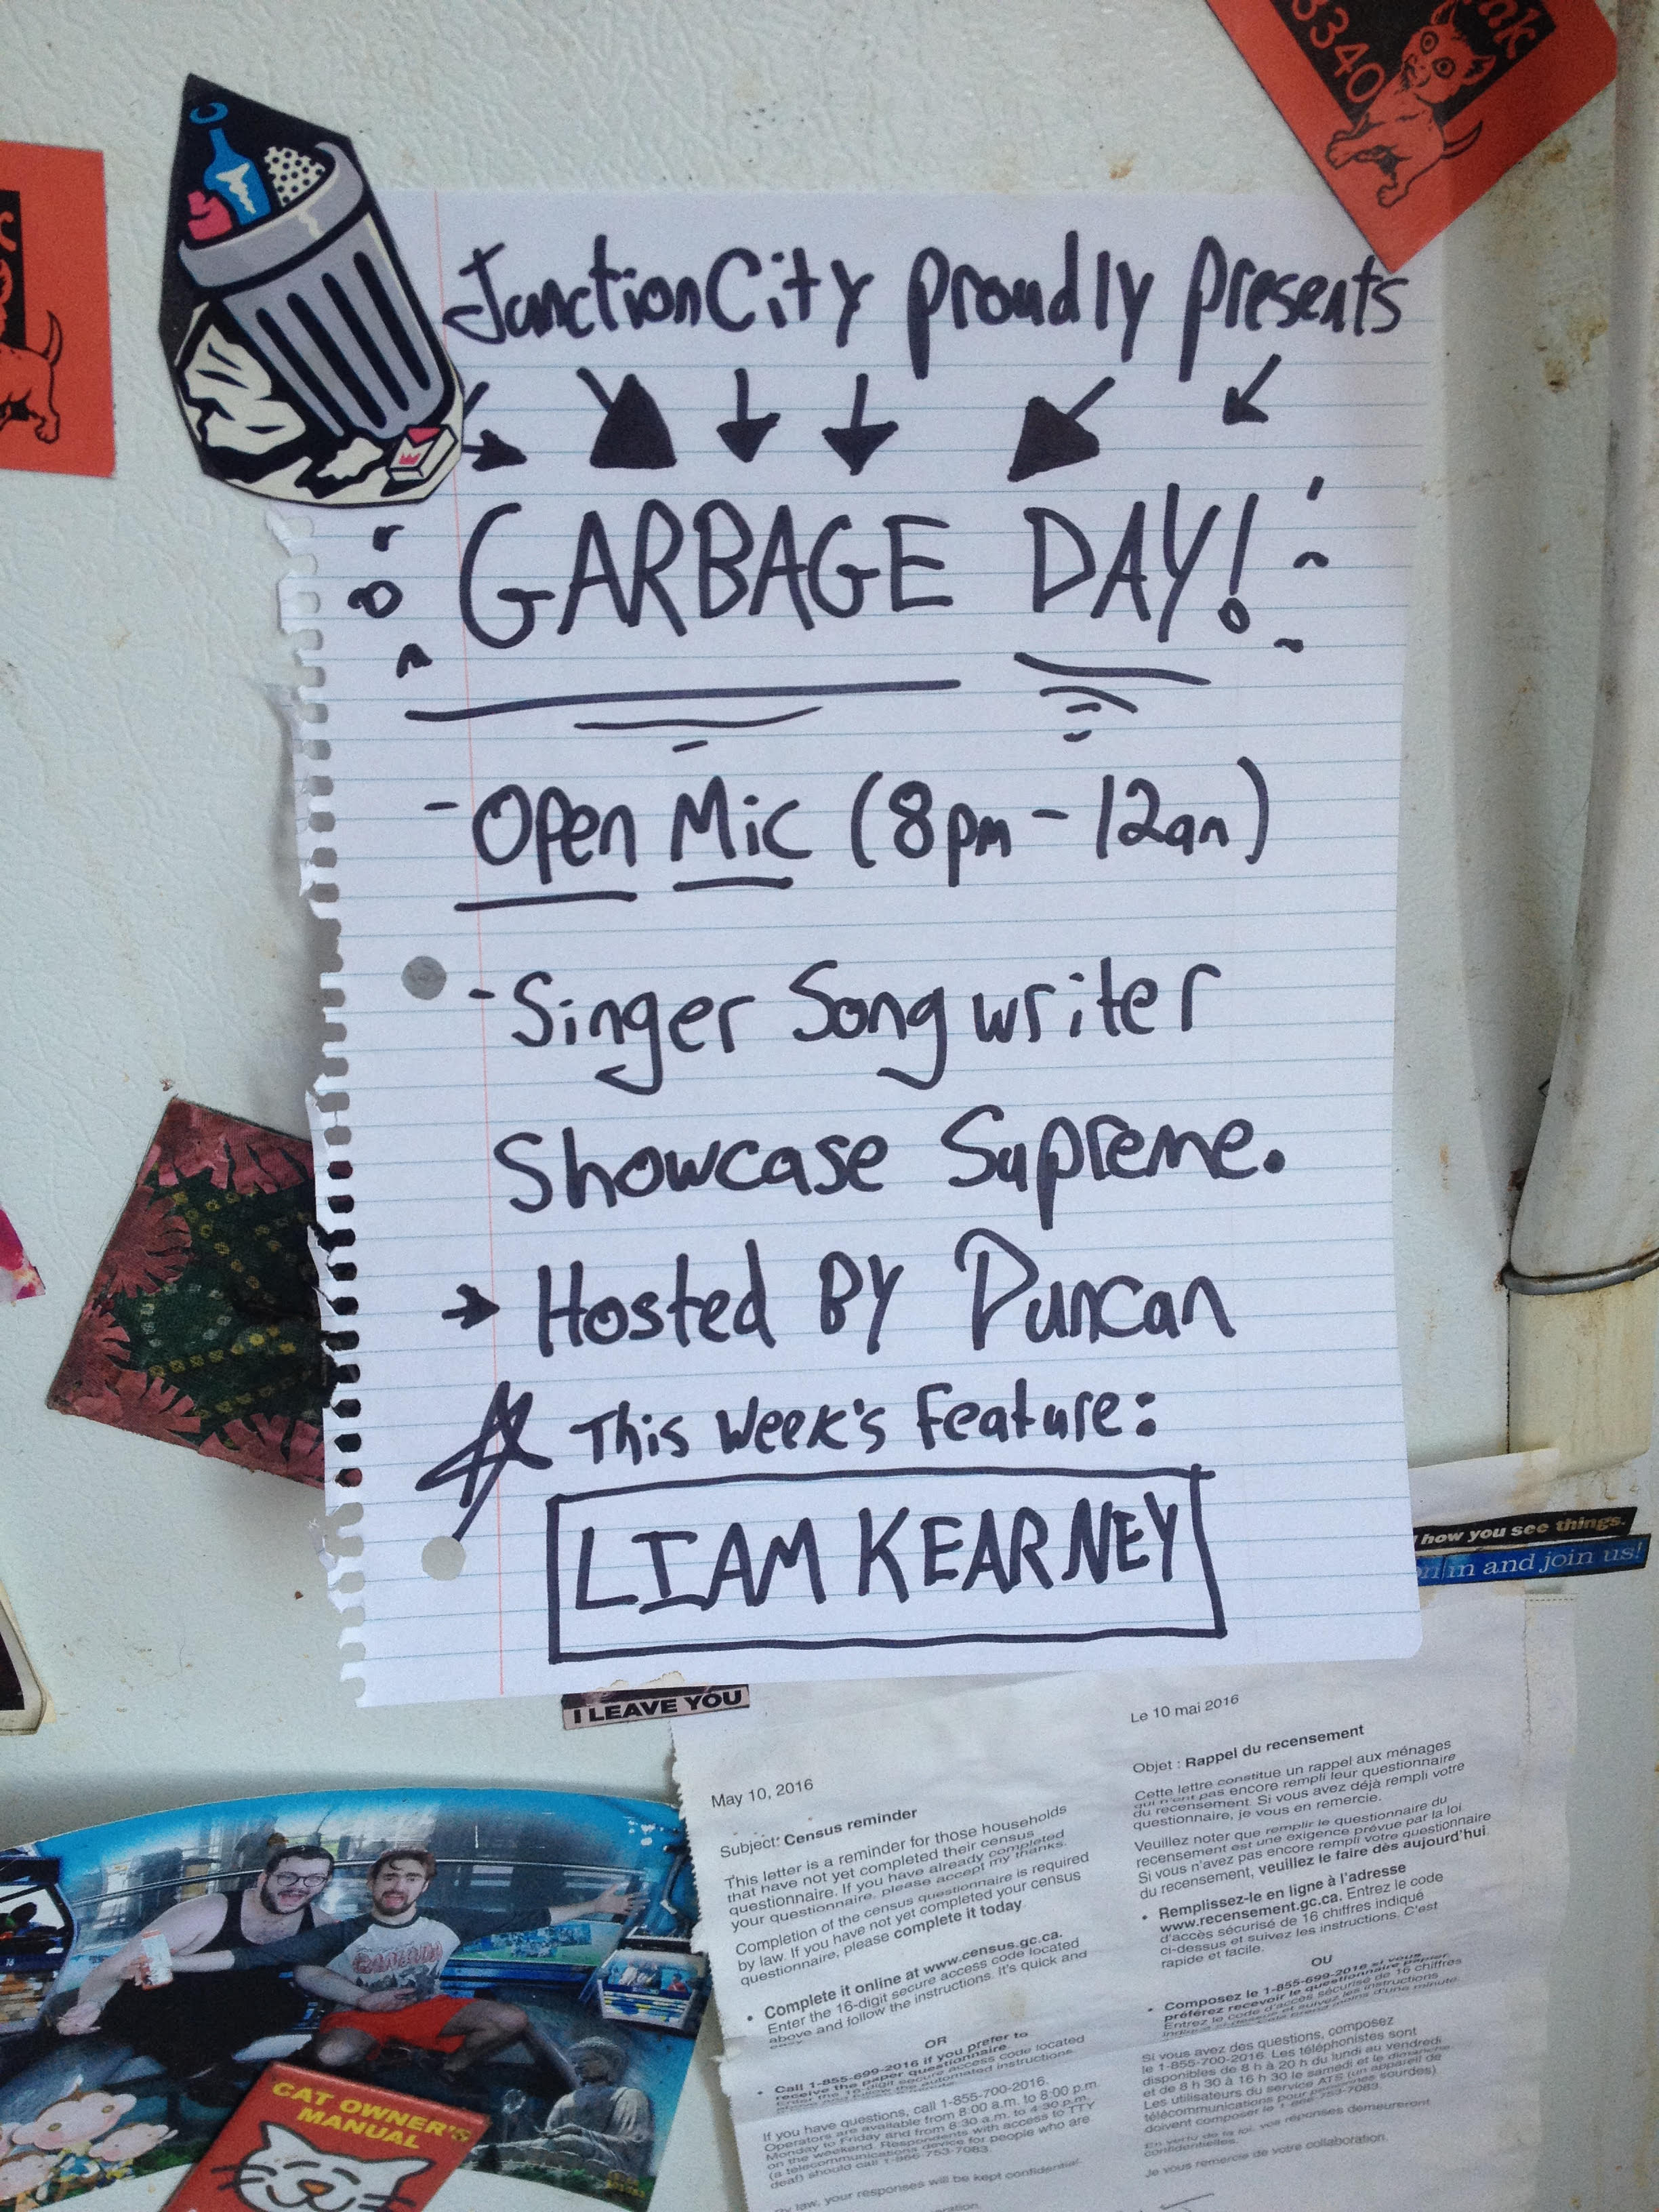 nk
3340
JunctionCity proudly presents
GARBAGE DAY!
- Open Mic (8pm - 12am)
- Singer Songwriter
Showcase Supreme.
→ Hosted By Duncan
This Week's Feature:
LIAM KEARNEY
how you see things.
in and join us!
I LEAVE YOU
May 10, 2016
Subject: Census reminder
This letter is a reminder for those households
that have not yet completed their census
questionnaire. If you have already completed
your questionnaire, please accept my thanks.
Completion of the census questionnaire is required
by law. If you have not yet completed your census
questionnaire, please complete it today.
• Complete it online at www.census.gc.ca.
Enter the 16-digit secure access code located
above and follow the instructions. It's quick and
easy.
OR
• Call 1-855-699-2016 if you prefer to
receive the paper questionnaire.
Enter the 16-digit secure access code located
above and follow the automated instructions.
If you have questions, call 1-855-700-2016.
Operators are available from 8:00 a.m. to 8:00 p.m.
Monday to Friday and from 8:30 a.m. to 4:30 p.m.
on the weekend. Respondents with access to TTY
(a telecommunications device for people who are
deaf) should call 1-866-753-7083.
By law, your responses will be kept confidential.
Le 10 mai 2016
Objet : Rappel du recensement
Cette lettre constitue un rappel aux ménages
qui n'ont pas encore rempli leur questionnaire
du recensement. Si vous avez déjà rempli votre
questionnaire, je vous en remercie.
Veuillez noter que remplir le questionnaire du
recensement est une exigence prévue par la loi.
Si vous n'avez pas encore rempli votre questionnaire
du recensement, veuillez le faire dès aujourd'hui.
• Remplissez-le en ligne à l'adresse
www.recensement.gc.ca. Entrez le code
d'accès sécurisé de 16 chiffres indiqué
ci-dessus et suivez les instructions. C'est
rapide et facile.
OU
• Composez le 1-855-699-2016 si vous
préférez recevoir le questionnaire papier.
Entrez le code d'accès sécurisé de 16 chiffres
Si vous avez des questions, composez
le 1-855-700-2016. Les téléphonistes sont
disponibles de 8 h à 20 h du lundi au vendredi
et de 8 h 30 à 16 h 30 le samedi et le dimanche.
Les utilisateurs du service ATS (un appareil de
télécommunications pour personnes sourdes)
doivent composer le 1-866-753-7083.
En vertu de la loi, vos réponses demeureront
confidentielles.
Je vous remercie de votre collaboration.
CANADA
CAT OWNER'S
MANUAL